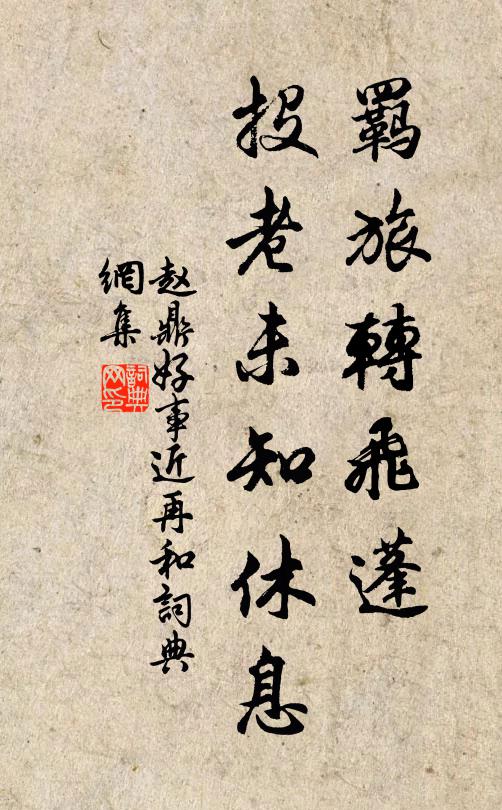 羈旅轉飛蓬
投老未知休息
赵鼎好事近再和詞典
網集
詞典網印